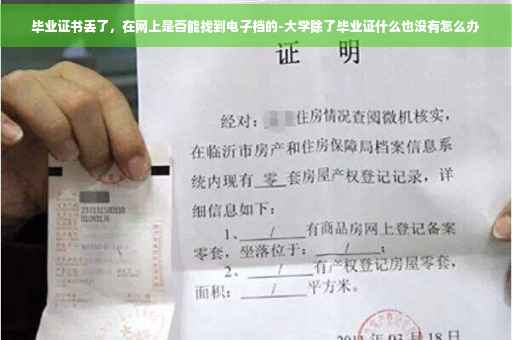 毕业证书丢了，在网上是否能找到电子档的-大学除了毕业证什么也没有怎么办
证 明
经对：住房情况查阅微机核实，
在临沂市房产和住房保障局档案信息系
统内现有 零 套房屋产权登记记录，详
细信息如下：
1、 / 有商品房网上登记备案
零套，坐落位于： / ；
2、 / 有产权登记房屋零套，
面积： / 平方米。
03月18日